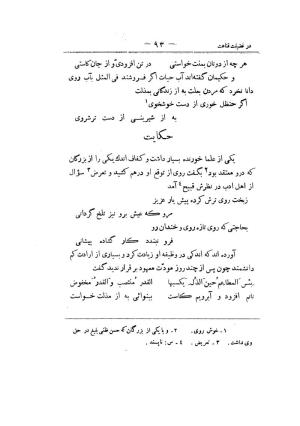 در فضیلت قناعت
— ۹۳ —
هر چه از دونان بمنت خواستی در تن افزودی و از جان کاستی
و حکیمان گفته‌اند آب حیات اگر فروشند فی المثل بآب روی
دانا نخرد که مردن بعلت به از زندگانی بمذلت
اگر حنظل خوری از دست خوشخوی۱
به از شیرینی از دست ترشروی
حکایت
یکی از علما خورنده بسیار داشت و کفاف اندک یکی را از بزرگان
که درو معتقد بود۲ بگفت روی از توقع او درهم کشید و تعرض۳ سؤال
از اهل ادب در نظرش قبیح۴ آمد
زبخت روی ترش کرده پیش یار عزیز
مرو که عیش برو نیز تلخ گردانی
بحاجتی که روی تازه روی و خندان رو
فرو نبندد کار گشاده پیشانی
آورده اند که اندکی در وظیفه او زیادت کرد و بسیاری از ارادت کم
دانشمند چون پس از چند روز مودّت معهود بر قرار ندید گفت
بئس المطاعم حین الذل یکسبها القدر منتصب والقدر مخفوض
نانم افزود و آبرویم کاست بینوائی به از مذلت خواست
۱ - خوش روی. ۲ - و با یکی از بزرگان که حسن ظنی بلیغ در حق
وی داشت. ۳ - تعریض. ۴ - س: ناپسند.